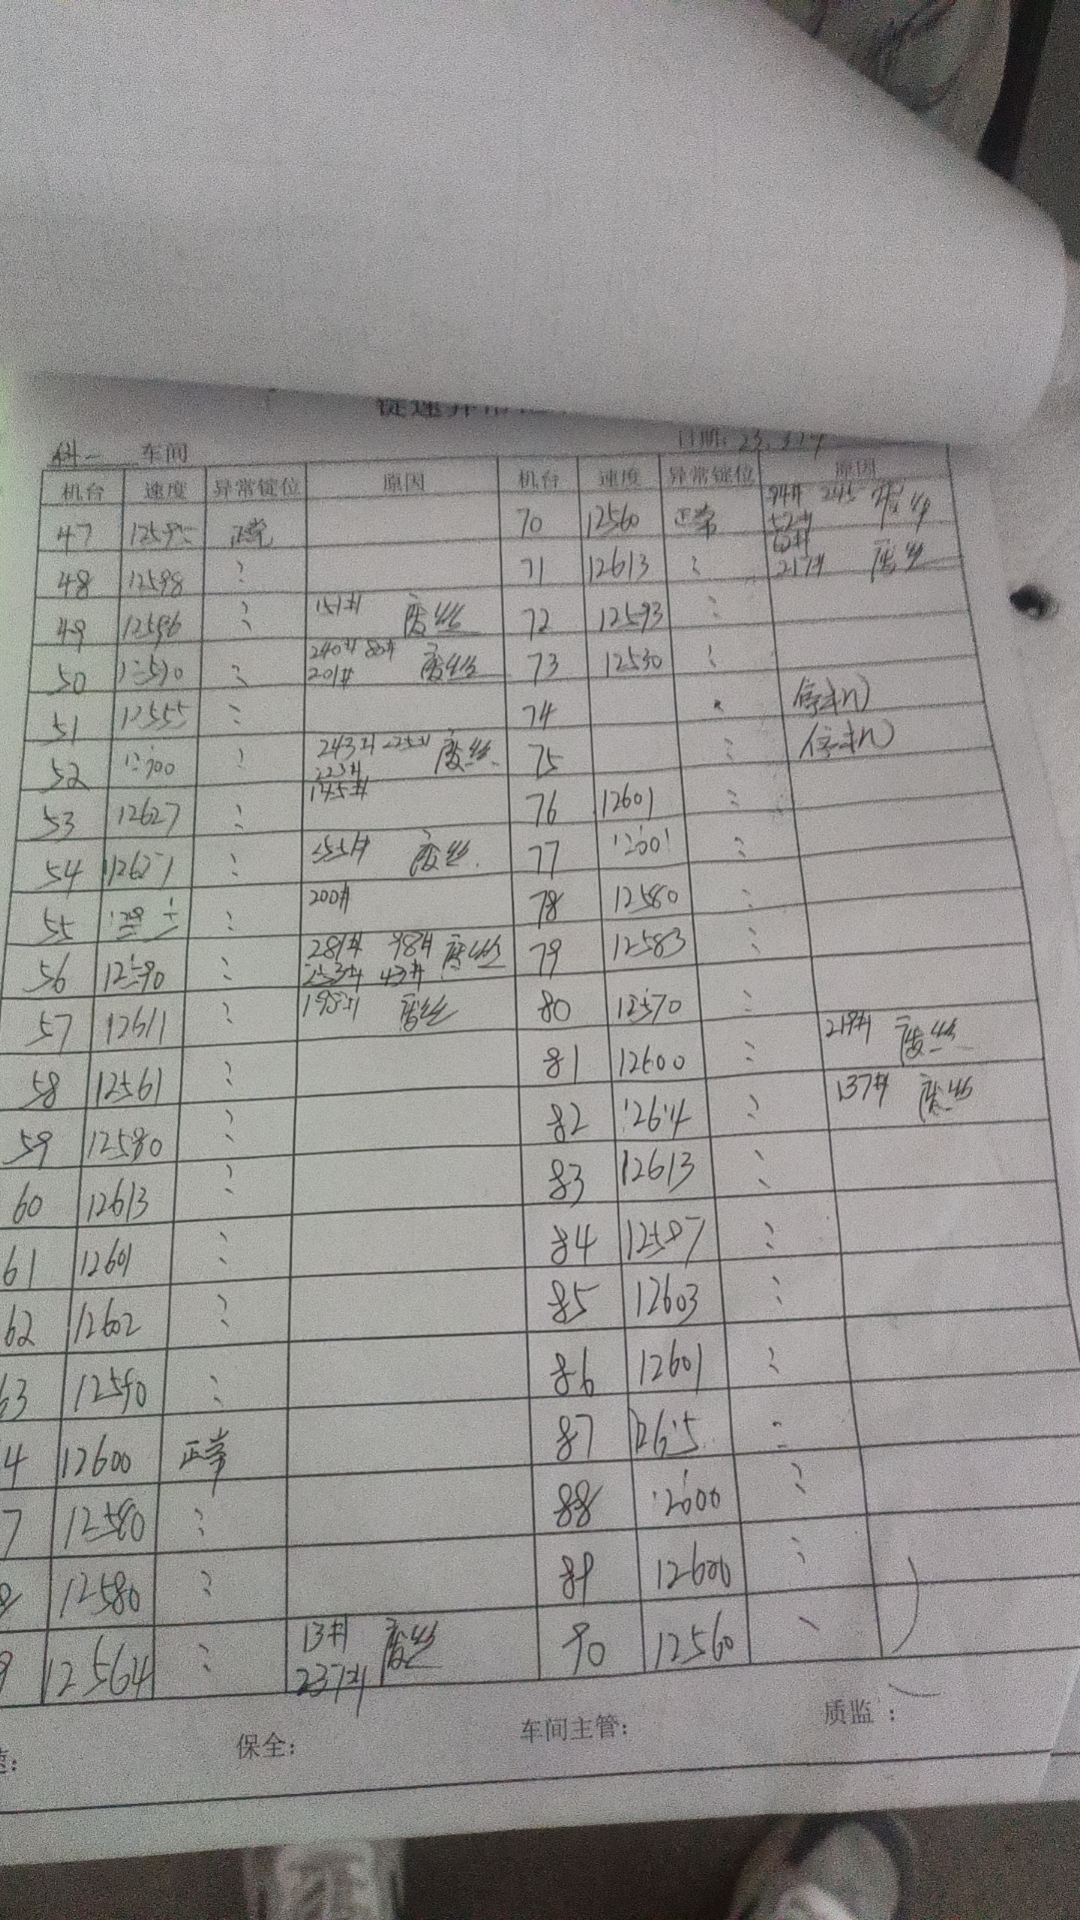 车间
日期: 23.3.19
机台 速度 异常锭位 原因 机台 速度 异常锭位 原因
47 12595 正常 70 12560 正常
48 12598 71 12613 217# 废丝
49 12596 151# 废丝 72 12593
50 12590 240# 80# 201# 废丝 73 12530
51 12555 74 停机
52 243# 废丝 75 停机
53 12627 145# 76 12601
54 12627 255# 废丝 77 12601
55 200# 78 12580
56 12590 281# 98# 253# 43# 废丝 79 12583
57 12611 195# 废丝 80 12570
58 12561 81 12600 219# 废丝
59 12580 82 12614 137# 废丝
60 12613 83 12613
61 12601 84 12587
62 12602 85 12603
63 12590 86 12601
4 12600 正常 87 12615
7 12580 88 12600
12580 89 12600
9 12564 13# 237# 废丝 90 12560
速: 保全: 车间主管: 质监: